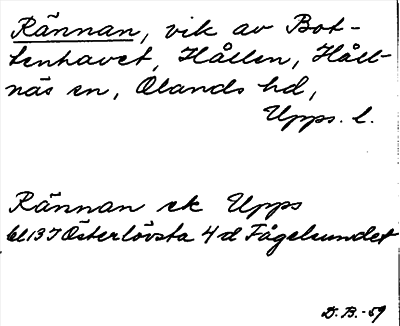 Rännan, vik av Bot-
tenhavet, Hållen, Håll-
näs sn, Olands hd,
Upps. l.
Rännan ek Upps
bl 13 I Österlövsta 4 d Fågelsundet
D. B. -59